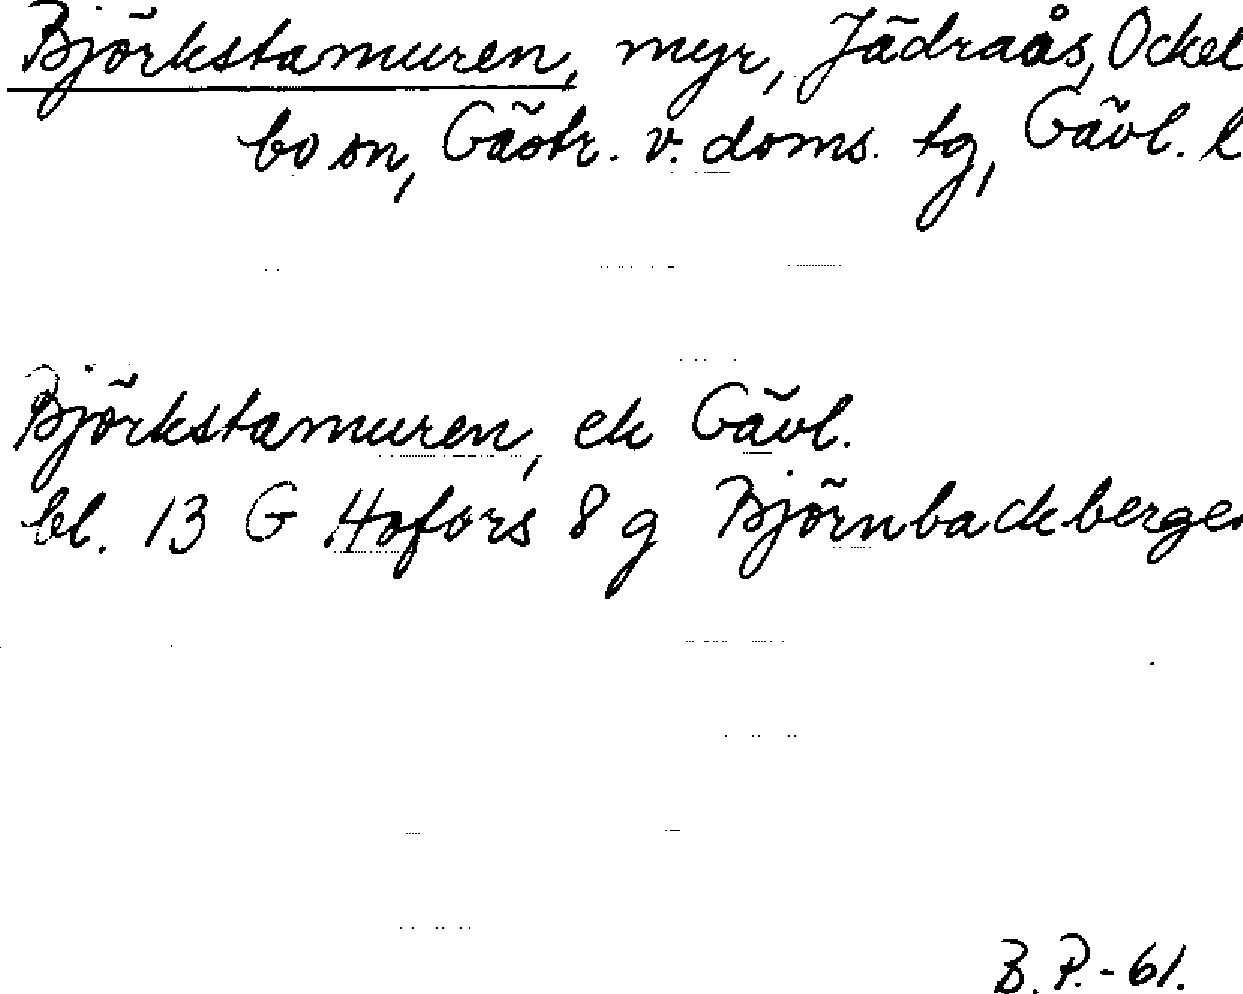 Björkstamuren, myr, Jädraås, Ockel
bo sn, Gästr. v. doms. tg, Gävl. l
Björkstamuren, ek Gävl.
bl. 13 G Hofors 8 g Björnbackberge
B. P. - 61.